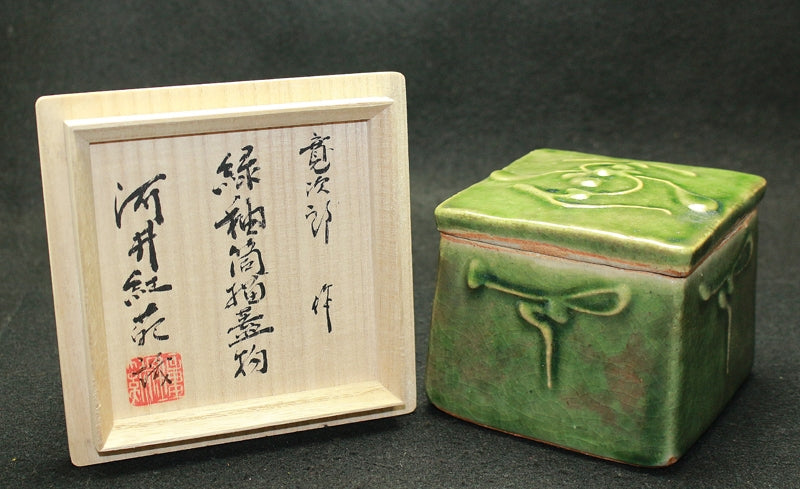 寛次郎 作
緑釉筒描蓋物
河井紅葩 識